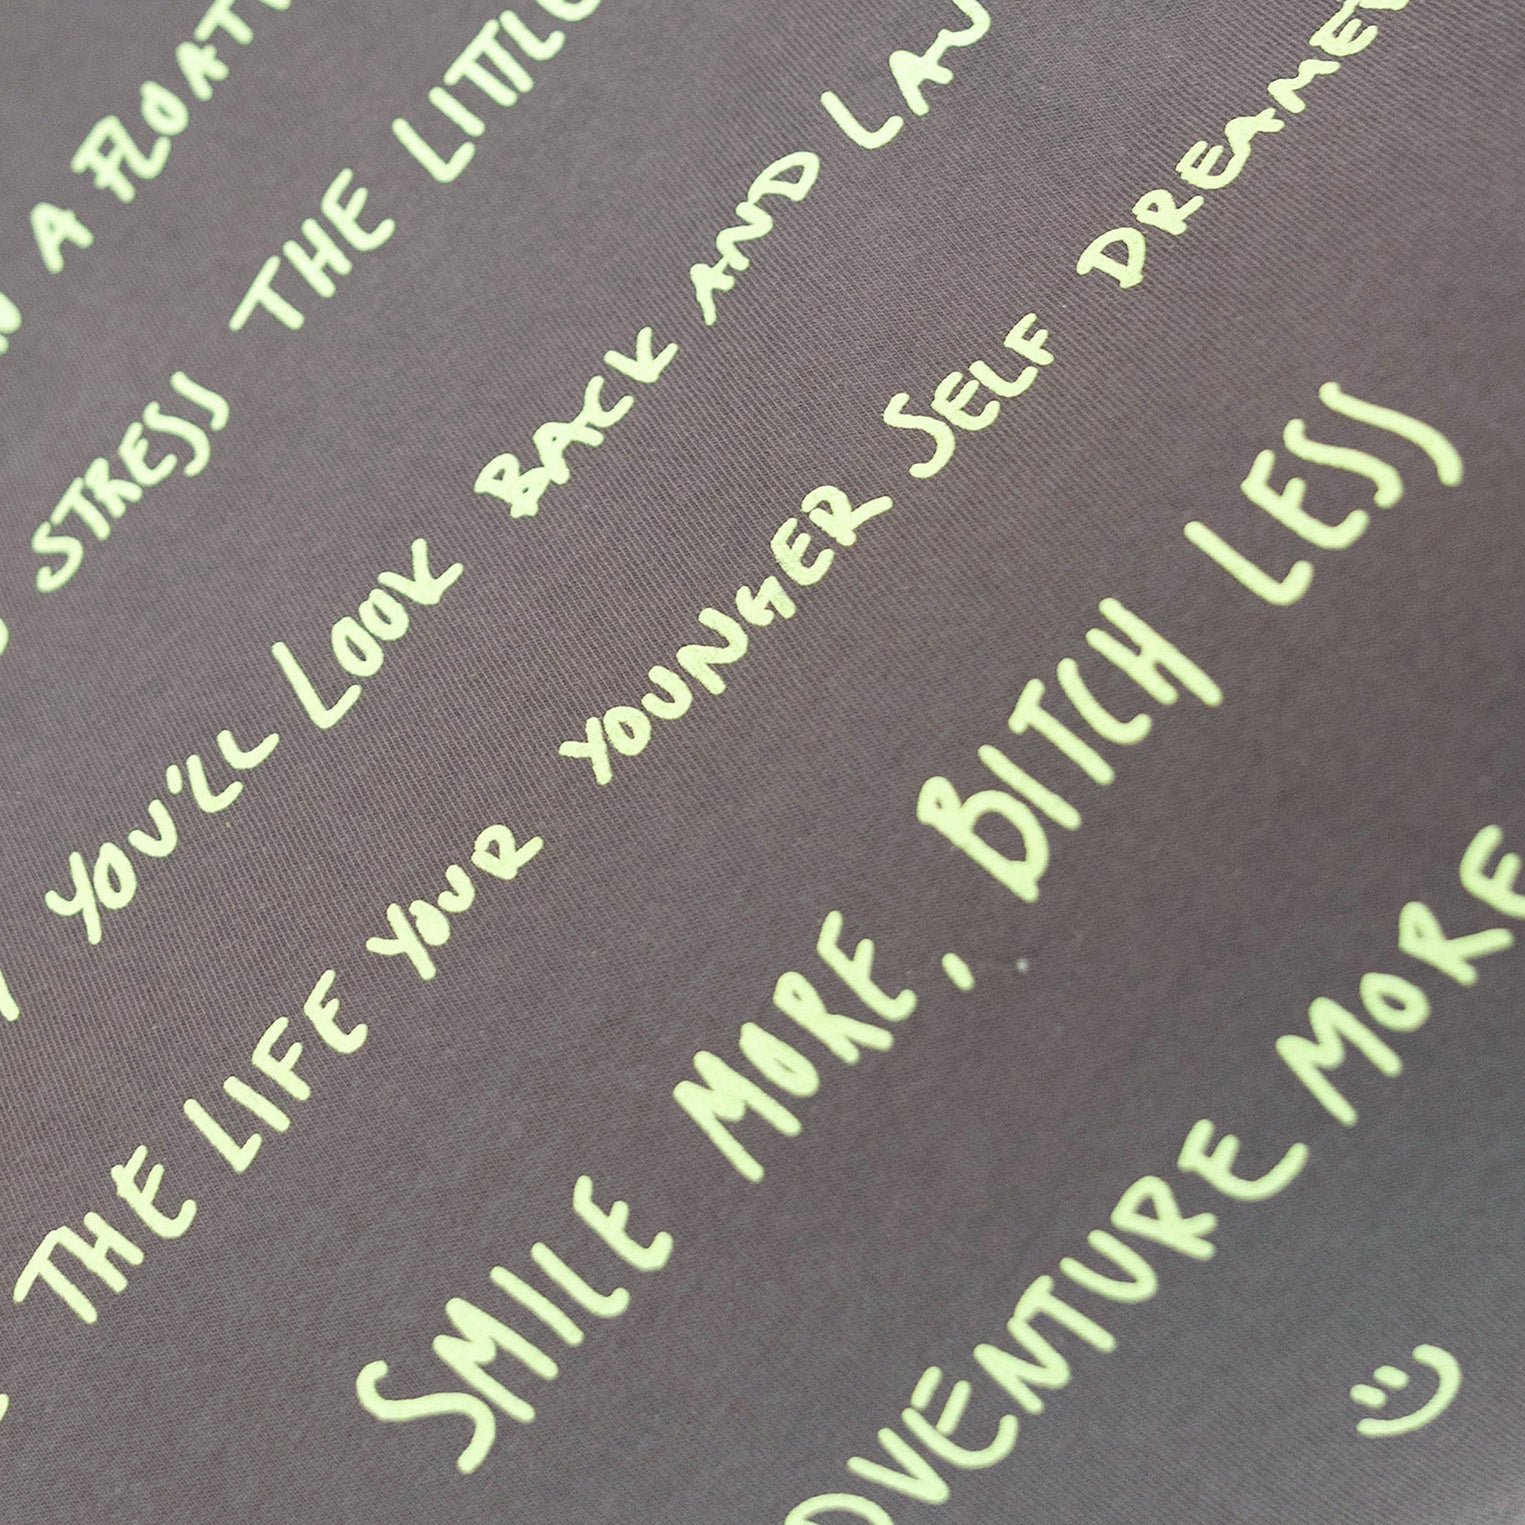 A FLOAT
STRESS THE LITTLE
YOU'LL LOOK BACK AND
THE LIFE YOUR YOUNGER SELF
SMILE MORE, BITCH LESS
MORE